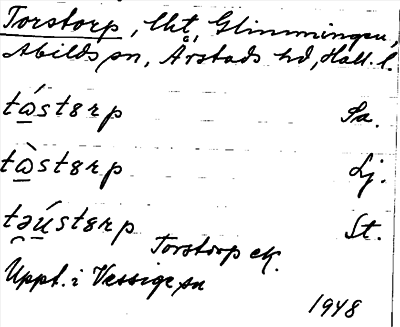 Torstorp, lht, Glimmingsu,
Abilds sn, Årstads hd, Hall. l.
tá̱stɐrp Sa.
tà̱stɐrp Lj.
tə̯ú̱stɐrp St.
Torstorp ek.
Uppt. i Vessige sn
1948